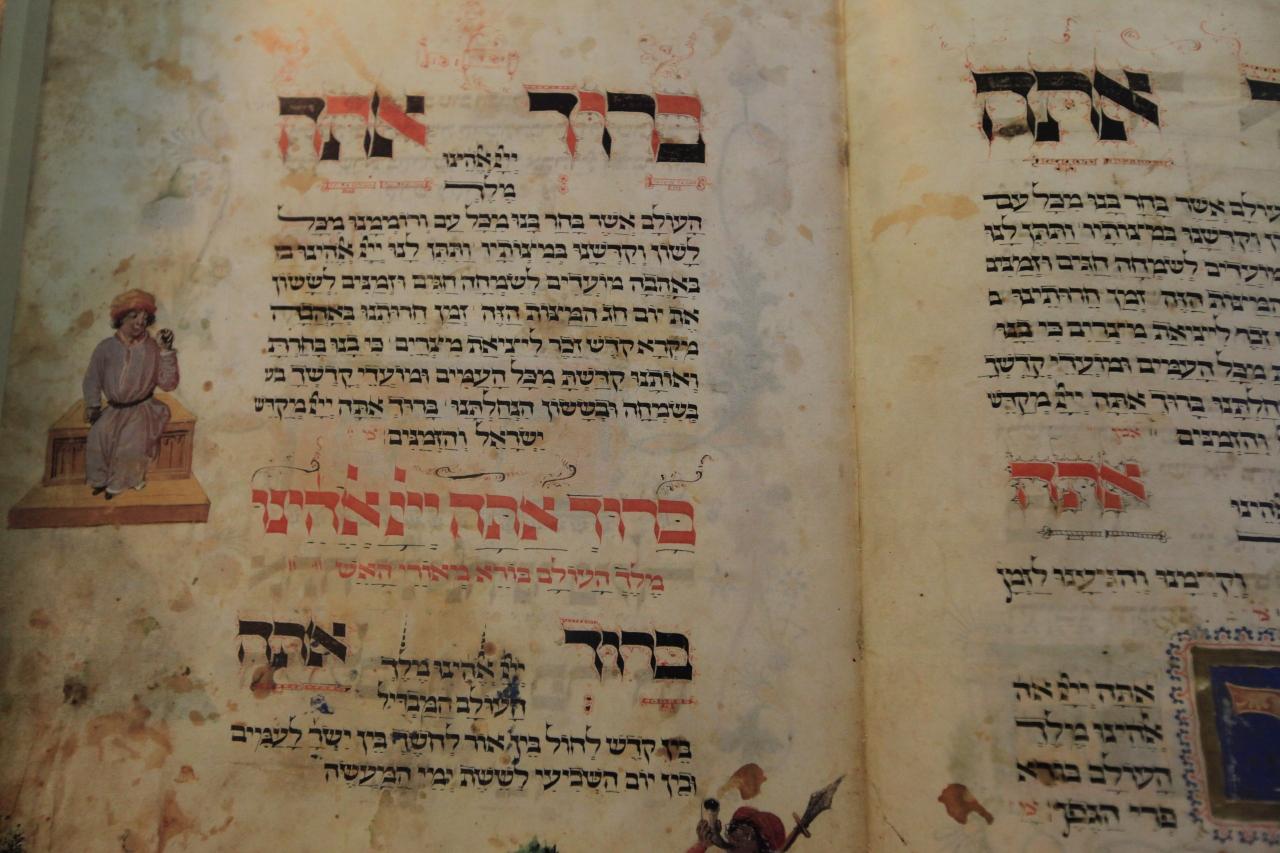 ברוך אתה
ייי אלהינו
מלך
העולם אשר בחר בנו מכל עם ורוממנו מכל
לשון וקדשנו במצותיו ותתן לנו ייי אלהינו
באהבה מועדים לשמחה חגים וזמנים לששון
את יום חג המצות הזה זמן חרותנו באהבה
מקרא קדש זכר ליציאת מצרים כי בנו בחרת
ואותנו קדשת מכל העמים ומועדי קדשך
בשמחה ובששון הנחלתנו ברוך אתה ייי מקדש
ישראל והזמנים
ברוך אתה ייי אלהינו
מלך העולם בורא מאורי האש
ברוך אתה
ייי אלהינו מלך
העולם המבדיל
בין קדש לחול בין אור לחשך בין ישר לעמים
ובין יום השביעי לששת ימי המעשה
אתה
אשר בחר בנו מכל עם
וקדשנו במצותיו ותתן לנו
מועדים לשמחה חגים וזמנים
המצות הזה זמן חרותינו
זכר ליציאת מצרים כי בנו
מכל העמים ומועדי קדשך
ברוך אתה ייי מקדש
והזמנים
אתה
וקיימנו והגיענו לזמן
אתה ייי אלה
אלהינו מלך
העולם בורא
פרי הגפן